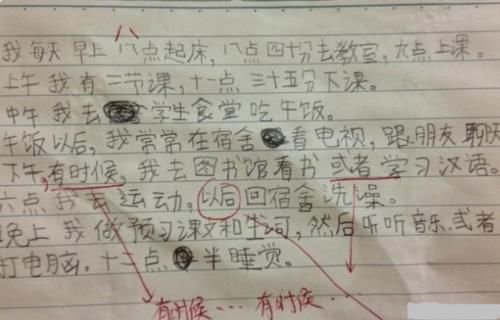 八
我每天早上八点起床，八点四十分去教室，九点上课。
上午我有三节课，十一点三十五分下课。
中午我去学生食堂吃午饭。
午饭以后，我常常在宿舍看电视，跟朋友聊天
下午，有时候，我去图书馆看书或者学习汉语。
六点我去运动，以后回宿舍洗澡。
晚上我做预习课文和生词，然后听听音乐，或者
打电脑。十二点半睡觉。
有时候…有时候…